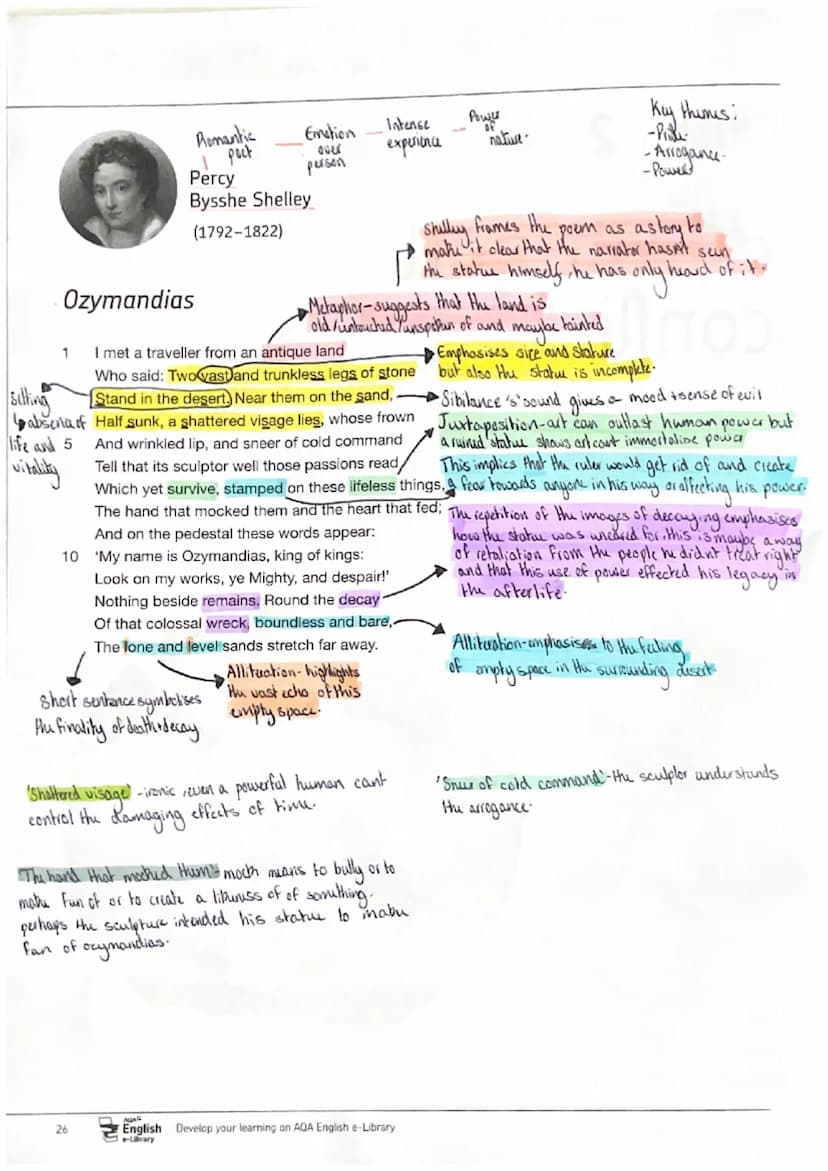 Key themes:
-Pride.
-Arrogance.
-Power
Romantic poet — Emotion over person — Intense experience — Power of nature.
Percy
Bysshe Shelley
(1792–1822)
Shelley frames the poem as a story to
make it clear that the narrator hasn't seen
the statue himself, he has only heard of it.
Ozymandias
Metaphor-suggests that the land is
old/untouched/unspoken of and maybe tainted
1 I met a traveller from an antique land
Who said: Two vast and trunkless legs of stone
Stand in the desert. Near them on the sand,
Half sunk, a shattered visage lies, whose frown
5 And wrinkled lip, and sneer of cold command
Tell that its sculptor well those passions read
Which yet survive, stamped on these lifeless things,
The hand that mocked them and the heart that fed;
And on the pedestal these words appear:
10 'My name is Ozymandias, king of kings:
Look on my works, ye Mighty, and despair!'
Nothing beside remains. Round the decay
Of that colossal wreck, boundless and bare,
The lone and level sands stretch far away.
Setting
absence of
life and
vitality
Emphasises size and stature
but also the statue is incomplete.
Sibilance 's' sound gives a mood + sense of evil
Juxtaposition-art can outlast human power but
a ruined statue shows art cant immortalise power
This implies that the ruler would get rid of and create
a fear towards anyone in his way or affecting his power.
The repetition of the images of decaying emphasises
how the statue was uncared for, this is maybe a way
of retaliation from the people he didnt treat right
and that this use of power effected his legacy in
the afterlife.
Alliteration-emphasises to the feeling
of empty space in the surrounding desert
Alliteration-highlights
the vast echo of this
empty space.
Short sentence symbolises
the finality of death+decay
'Shattered visage' -ironic, even a powerful human cant
control the damaging effects of time.
'Sneer of cold command'-the sculptor understands
the arrogance.
'The hand that mocked them'- mock means to bully or to
make fun of or to create a likeness of of something.
perhaps the sculpture intended his statue to make
fun of ozymandias.
26 AQA English e-Library Develop your learning on AQA English e-Library